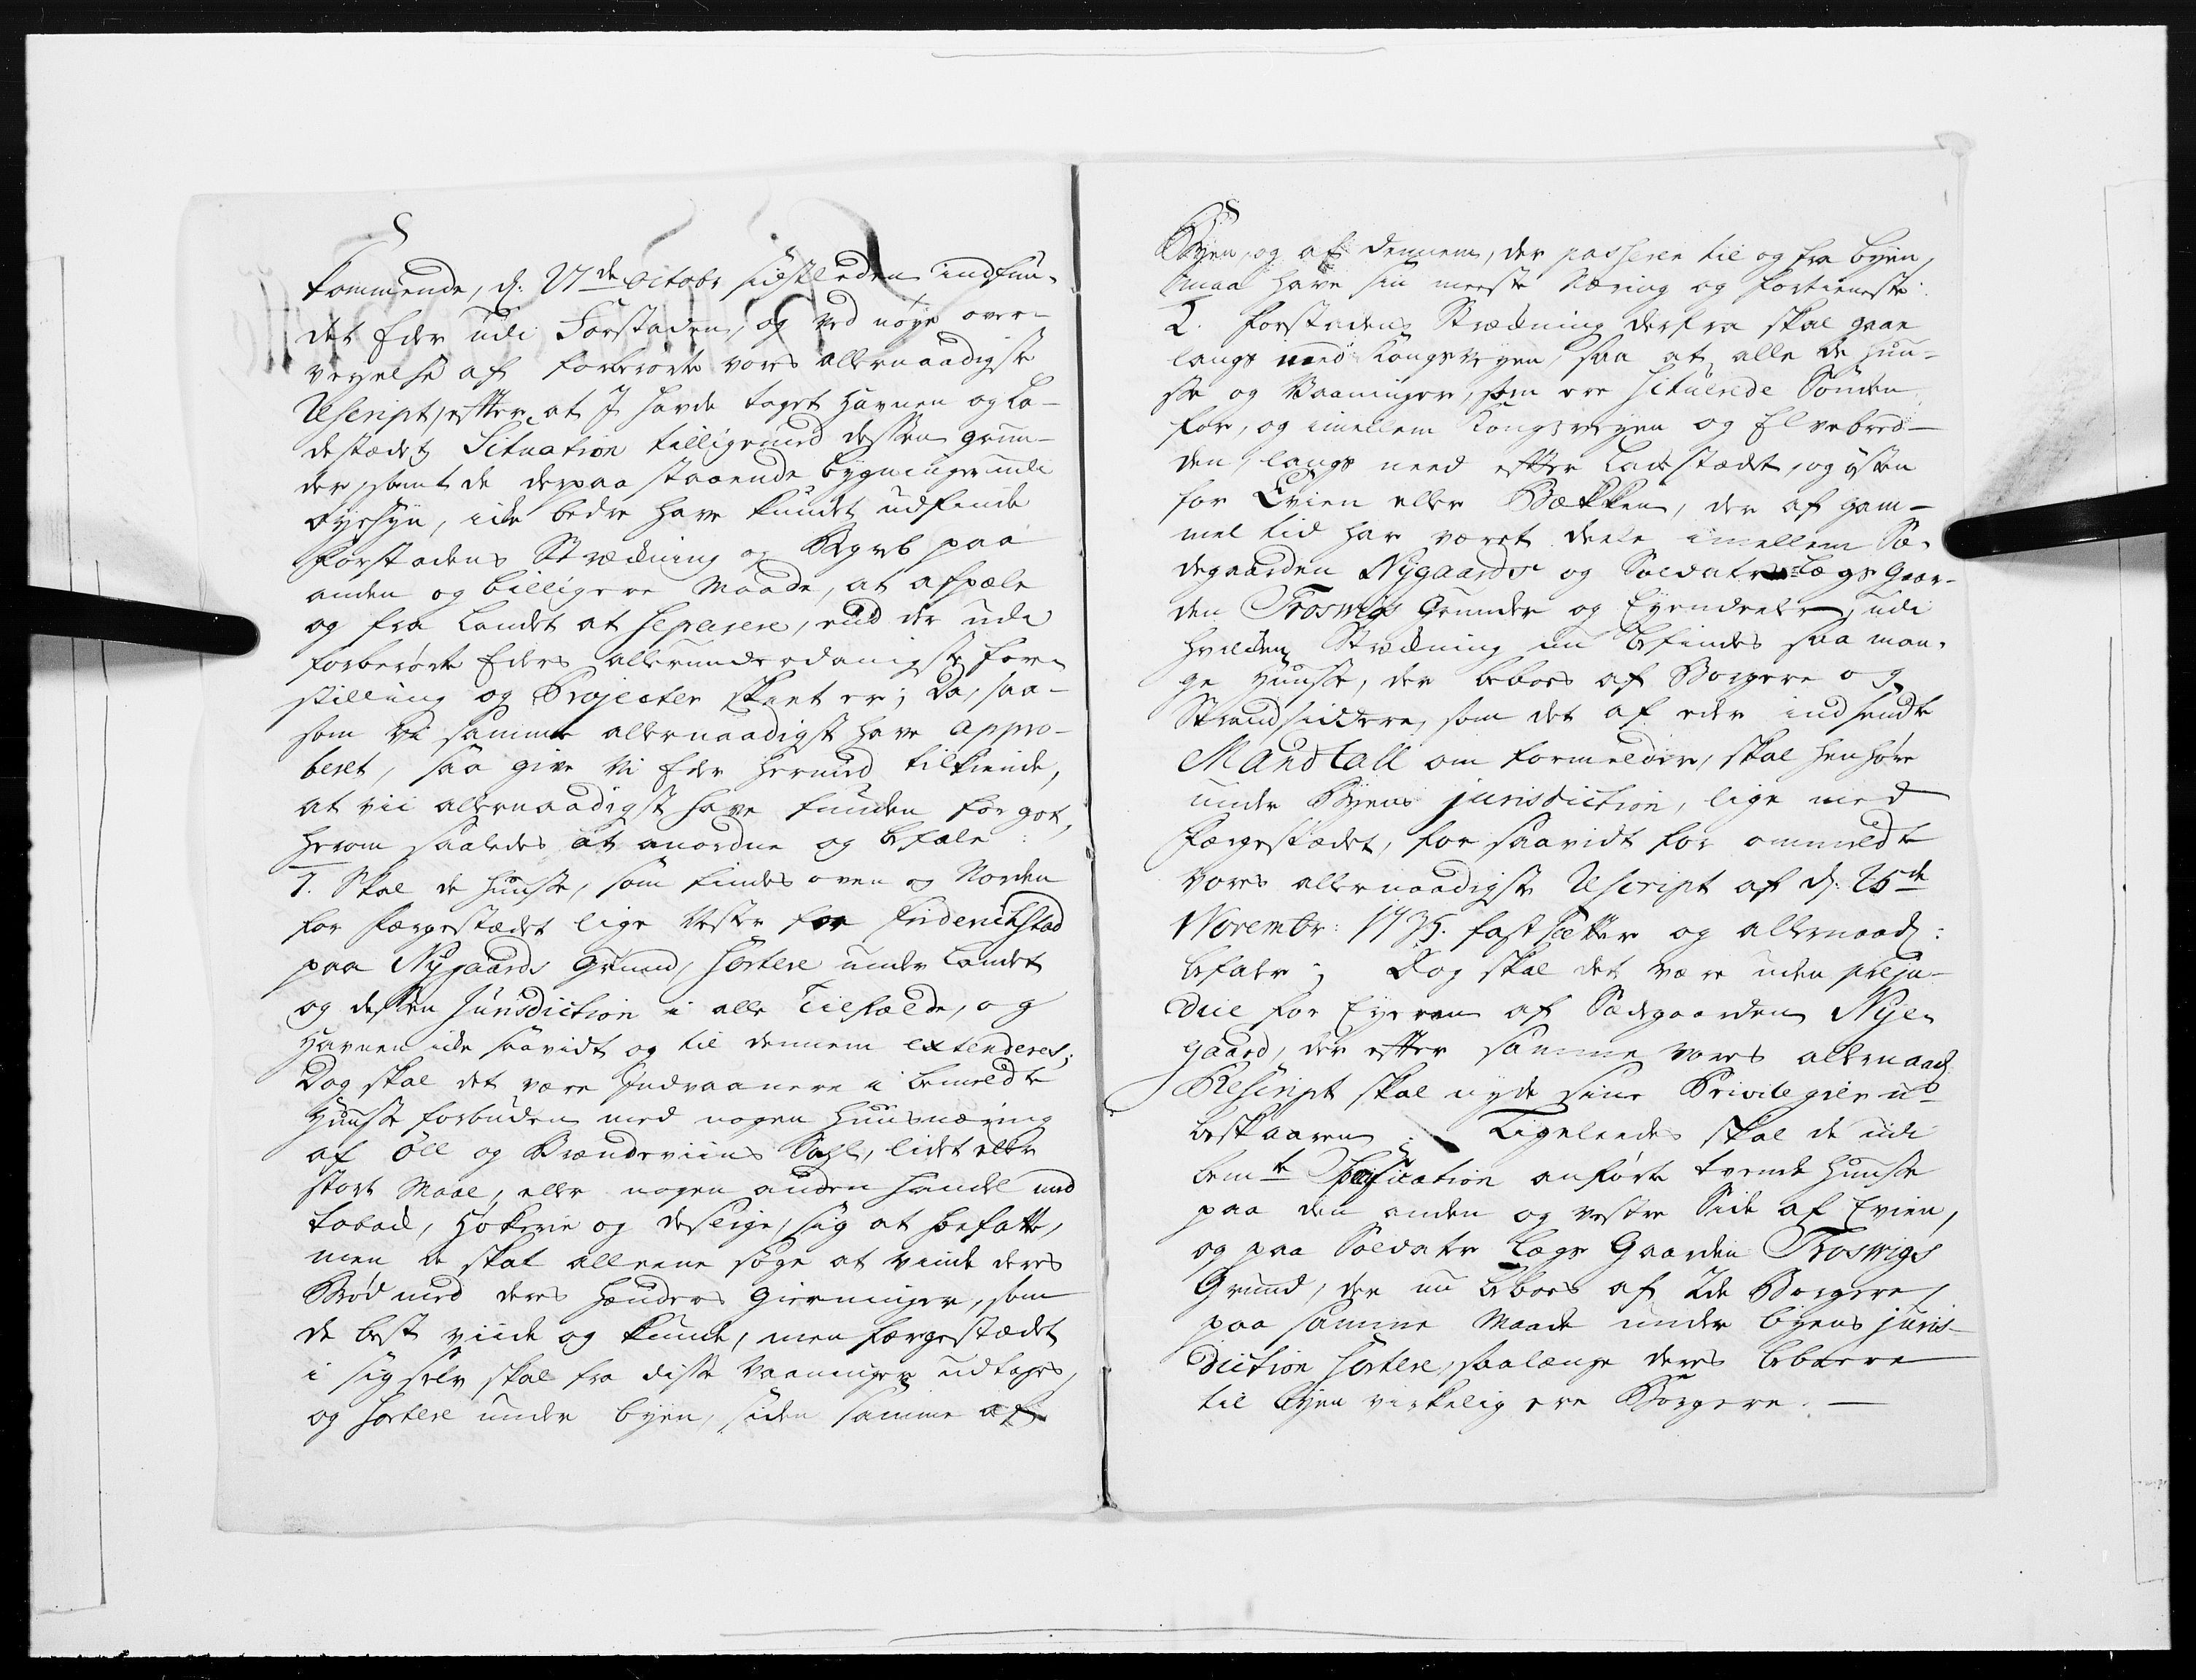 kommende, d: 27de Octobr sidstleden indfun-
det Eder udi Forstaden, og ved nøye over-
veyelse af forberørte vores allernaadigste
Rescript, efter at I havde taget Havnen og La-
destædets Situation tilligemed dessen grun-
der, samt de derpaa staaende bygninger udi
øyesyn, icke bedre have kundet udfinde
Forstadens Strækning og Begreb paa
anden og billigere Maade, at afpæle
og fra Landet at separere, end der udi
forberørte Eders allerunderdanigste fore-
stilling og Projecter skeet er; Da, saa-
som Vi samme allernaadigst have appro-
beret, saa give Vi Eder hermed tilkiende,
at vii allernaadigst have funden for got,
herom saaledes at anordne og befale:
1. Skal de Huuse, som findes oven og Norden
for færgestædet lige Vester for Friderichstad
paa Nygaards Grund, sortere under Landet
og dessen Jurisdiction i alle Tilfælde, og
Havnen icke saavidt og til dennem extenderes;
Dog skal det være Indvaanere i bemeldte
Huuse forbuden med nogen Huusnæring
af Øll og Brændeviins Sahl, lidet eller
stort Maal, eller nogen anden handel med
Toback, Høkerie og deslige, sig at befatte,
men de skal alleene søge at vinde deres
Brød med deres Hænders gierninger, som
de best viide og kunde, men færgestædet
i sig selv skal fra disse Vaaninger udtages,
og sortere under byen, siden samme af
Byen, og af dennem, der passerer til og fra byen,
maa have sin meeste Næring og fortieneste.
2. Forstadens Strækning derfra skal gaae
langs med Kongeveyen, saa at alle de Huu-
se og Vaaninger, som ere situerede Sønden
for, og imellem Kongeveyen og Elvebred-
den, langs need efter Ladestædet, og østen
for Evien eller Bækken, der af gam-
mel tid har været deele imellem Sæ-
degaarden Nygaards og Soldater Lægs Gaar-
den Troswigs Grunder og Eyendeele, udi
hvilken Strækning nu befindes saa man-
ge Huuse, der beboes af Borgere og
Strandsiddere, som det af eder indsendte
Mandtall om formelder, skal henhøre
under Byens jurisdiction, lige med
færgestædet, for saavidt for ommeldte
Vores allernaadigste Rescript af d: 25de
Novembr: 1735. fastsætter og allernaad:
befaler; Dog skal det være uden preju-
dice for Eyeren af Sædegaarden Nye-
gaard, der efter samme vores allernaad:
Rescript skal nyde sine Privilegier u-
beskaaren; Ligeleedes skal de udi
bemte Specification anførte tvende Huuse
paa den anden og vestre Side af Evien,
og paa Soldater Lægs Gaarden Troswigs
Grund, der nu beboes af 2de Borgere,
paa samme Maade under byens juris-
diction sortere, saalænge deres beboere
til byen virkelig ere Borgere. —